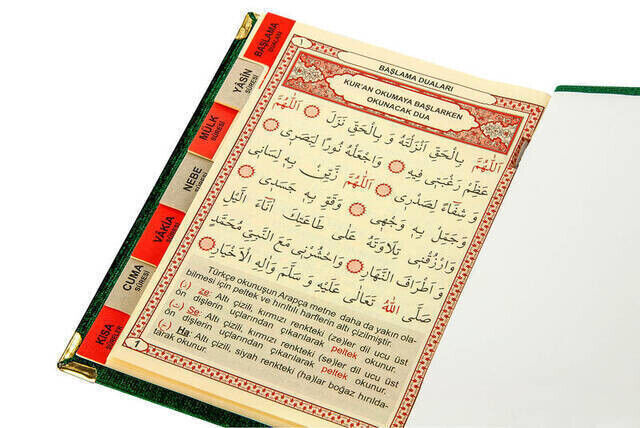 BAŞLAMA
DUALARI
YÂSÎN
SÛRESİ
MÜLK
SÛRESİ
NEBE
SÛRESİ
VÂKIA
SÛRESİ
CUMA
SÛRESİ
KISA
SÛRELER
1
BAŞLAMA DUALARI
KUR'AN OKUMAYA BAŞLARKEN
OKUNACAK DUA
اَللّٰهُمَّ بِالْحَقِّ اَنْزَلْتَهُ وَ بِالْحَقِّ نَزَلَ اَللّٰهُمَّ
عَظِّمْ رَغْبَتِى فِيهِ وَاجْعَلْهُ نُورًا لِبَصَرِى
وَ شِفَٓاءً لِصَدْرِى اَللّٰهُمَّ زَيِّنْ بِهِ لِسَانِى
وَجَمِّلْ بِهِ وَجْهِى وَقَوِّ بِهِ جَسَدِى
وَارْزُقْنِى تِلَاوَتَهُ عَلٰى طَاعَتِكَ اٰنَٓاءَ الَّيْلِ
وَ اَطْرَافَ النَّهَارِ وَاحْشُرْنِى مَعَ النَّبِىِّ مُحَمَّدٍ
صَلَّى اللّٰهُ تَعَالٰى عَلَيْهِ وَ سَلَّمَ وَاٰلِهِ الْاَخْيَارِ
Türkçe okunuşun Arapça metne daha da yakın ola-
bilmesi için peltek ve hırıltılı harflerin altı çizilmiştir.
(ذ) ze: Altı çizili, kırmızı renkteki (ze)ler dil ucu üst
ön dişlerin uçlarından çıkarılarak peltek okunur.
(ث) Se: Altı çizili, kırmızı renkteki (se)ler dil ucu üst
ön dişlerin uçlarından çıkarılarak peltek okunur.
Ha: Altı çizili, siyah renkteki (ha)lar boğaz hırılda-
tılarak okunur.
1